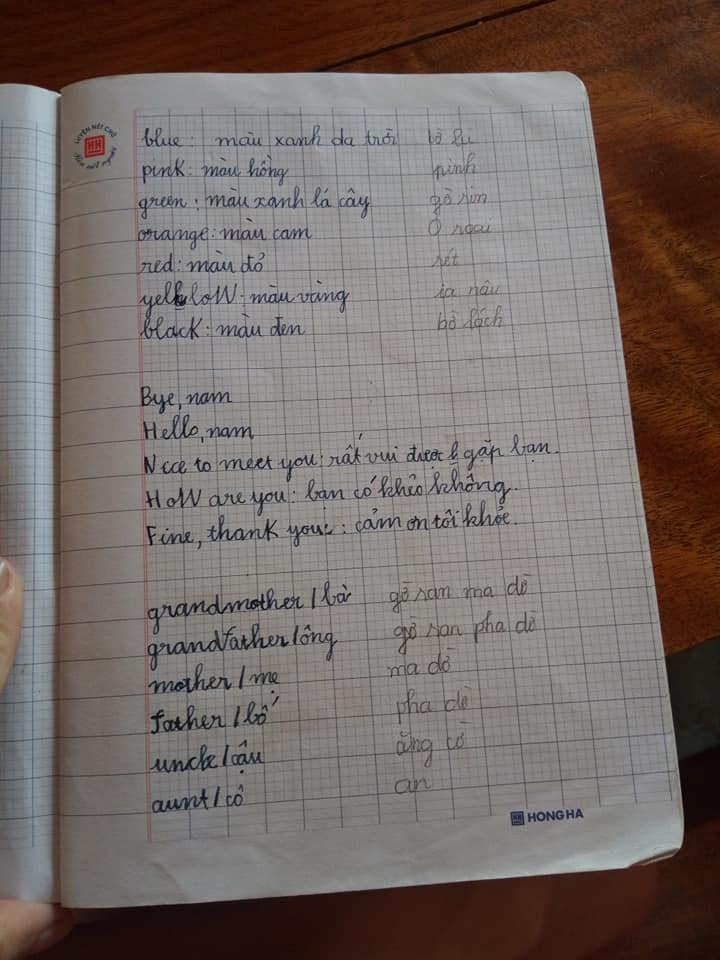 LUYỆN NÉT CHỮ
HH
blue: màu xanh da trời bồ lu
pink: màu hồng pinh
green: màu xanh lá cây gờ rin
orange: màu cam Ô roai
red: màu đỏ rét
yellow: màu vàng ia nâu
black: màu đen bồ lách
Bye, nam
Hello, nam
Nce to meet you: rất vui được gặp bạn.
HoW are you: bạn có khẻo không.
Fine, thank you: cảm ơn tôi khỏe.
grandmother / bà gờ ran ma dờ
grandfather / ông gờ ran pha dờ
mother / mẹ ma dờ
father / bố pha dờ
uncle / cậu ăng cồ
aunt / cô an
HH HONG HA